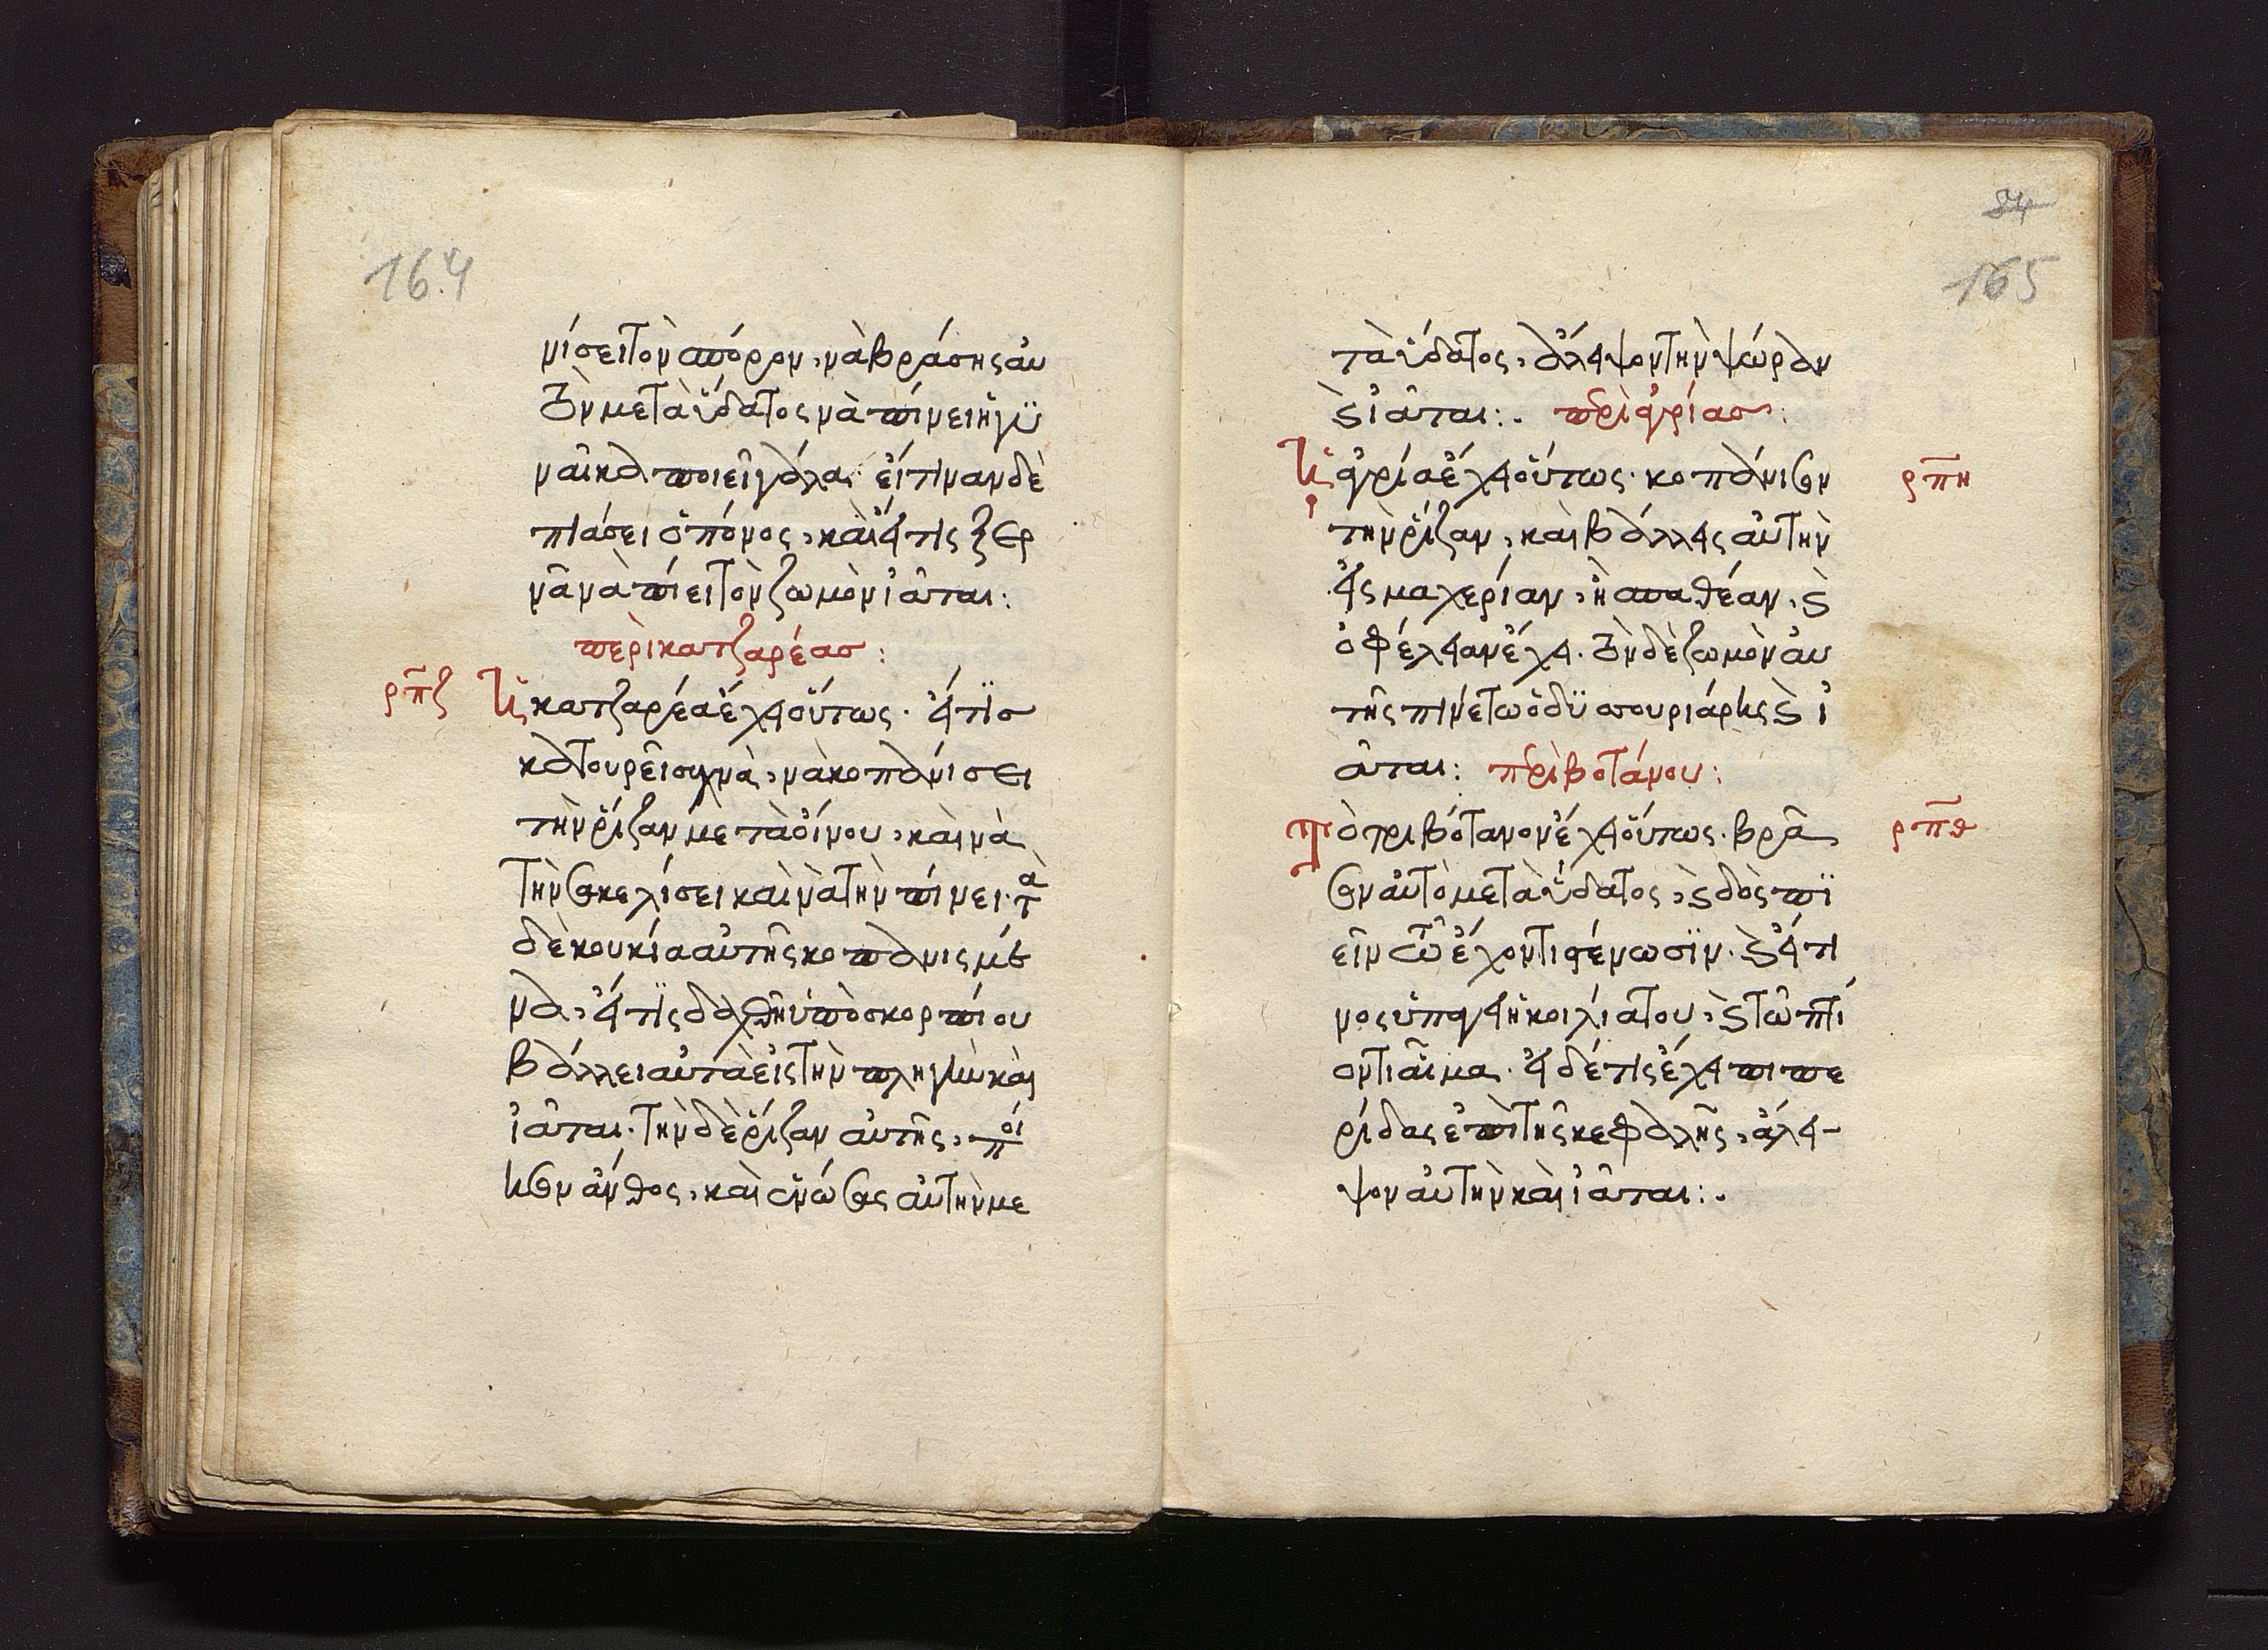 164
νίσει τὸν σπόρον, νὰ βράσης αὐ
τὸν μετὰ ὕδατος νὰ πίνει ἡ γυ
ναῖκα ποιεῖ γάλα· εἴ τιναν δὲ
πιάσει ὁ πόνος, καὶ εἴ τις ξερ
νᾶ νὰ πίει τὸν ζωμὸν ἰᾶται:
περὶ κατζαρέασ:
ρπζ
Ἡ κατζαρέα ἔχει οὕτως· εἴ τισ
κατουρεῖ συχνὰ, νὰ κοπανίσει
τὴν ῥίζαν μετὰ οἴνου, καὶ νὰ
τὴν σκελίσει καὶ νὰ τὴν πίνει· τὰ
δὲ κουκία αὐτῆς κοπανισμέ
να, εἴ τις δαχθῆ ὑπὸ σκορπίου
βάλλει αὐτὰ εἰς τὴν πληγὴν καὶ
ἰᾶται· τὴν δὲ ῥίζαν αὐτῆς, ποί
ησον ἄνθος, καὶ ἑνώσεις αὐτὴν με
84
165
τὰ ὕδατος, ἄλειψον τὴν ψώραν
καὶ ἰᾶται:. περὶ ἀγρίασ:
Ἡ ἀγρία ἔχει οὕτως· κοπάνισον
ρπη
τὴν ῥίζαν, καὶ βάλλεις αὐτὴν
εἰς μαχερίαν, ἢ σπαθέαν, καὶ
ὀφέλειαν ἔχει. τὸν δὲ ζωμὸν αὐ
τῆς πινέτω ὁ δυσουριάρης καὶ ἰ
ᾶται: περὶ βοτάνου:
Τὸ τριβότανον ἔχει οὕτως· βρᾶ
ρπθ
σον αὐτὸ μετὰ ὕδατος, καὶ δὸς πι
εῖν τῶ ἔχοντι φένωσιν. καὶ εἴ τι
νος ὑπάγει ἡ κοιλία του, καὶ τῶ πτύ
οντι αἷμα. εἰ δέ τις ἔχει πιπε
ρίδας ἐπὶ τῆς κεφαλῆς, ἄλει-
ψον αὐτὴν καὶ ἰᾶται:.